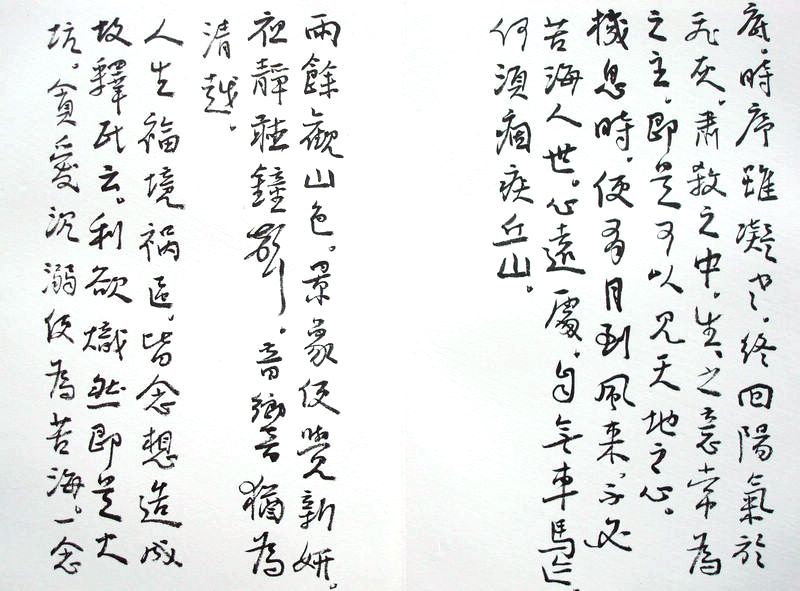 底。時序雖凝寒。終回陽氣於
飛灰。肅殺之中。生生之意常為
之主。即是可以見天地之心。
機息時。便有月到風來。不必
苦海人世。心遠處。自無車馬迹。
何須痼疾丘山。
雨餘觀山色。景象便覺新妍。
夜靜聽鐘聲。音響猶為
清越。
人生福境禍區。皆念想造成
故釋氏云。利欲熾然即是火
坑。貪愛沉溺便為苦海。一念